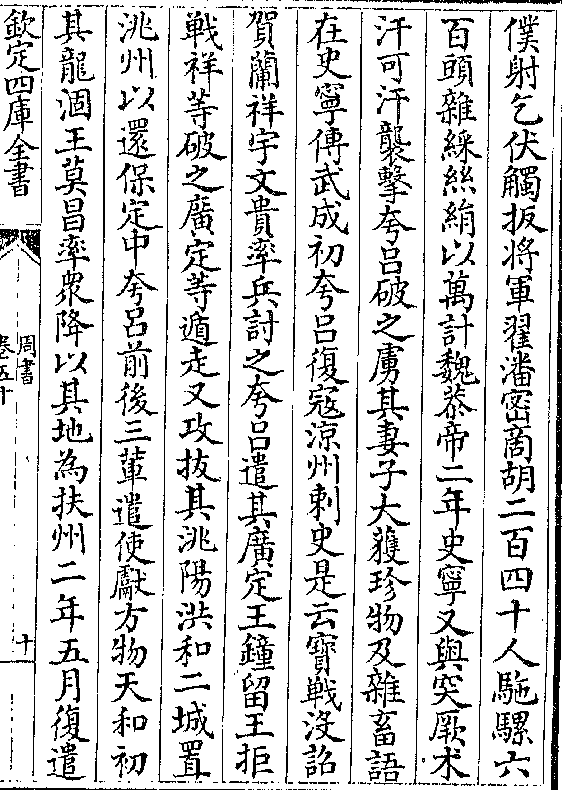 僕射乞伏觸扳將軍翟潘密啇胡二百四十人駞騾六
百頭雜綵絲絹以萬計魏恭帝二年史寧又與突厥木
汗可汗襲擊夸吕破之虜其妻子大獲珍物及雜畜語
在史寧傳武成初夸吕復寇涼州刺史是云寶戰没詔
賀蘭祥宇文貴率兵討之夸吕遣其廣定王鐘留王拒
戰祥等破之廣定等遁走又攻拔其洮陽洪和二城置
洮州以還保定中夸吕前後三軰遣使獻方物天和初
其龍涸王莫昌率衆降以其地為扶州二年五月復遣
欽定四庫全書
周書
卷五十
十